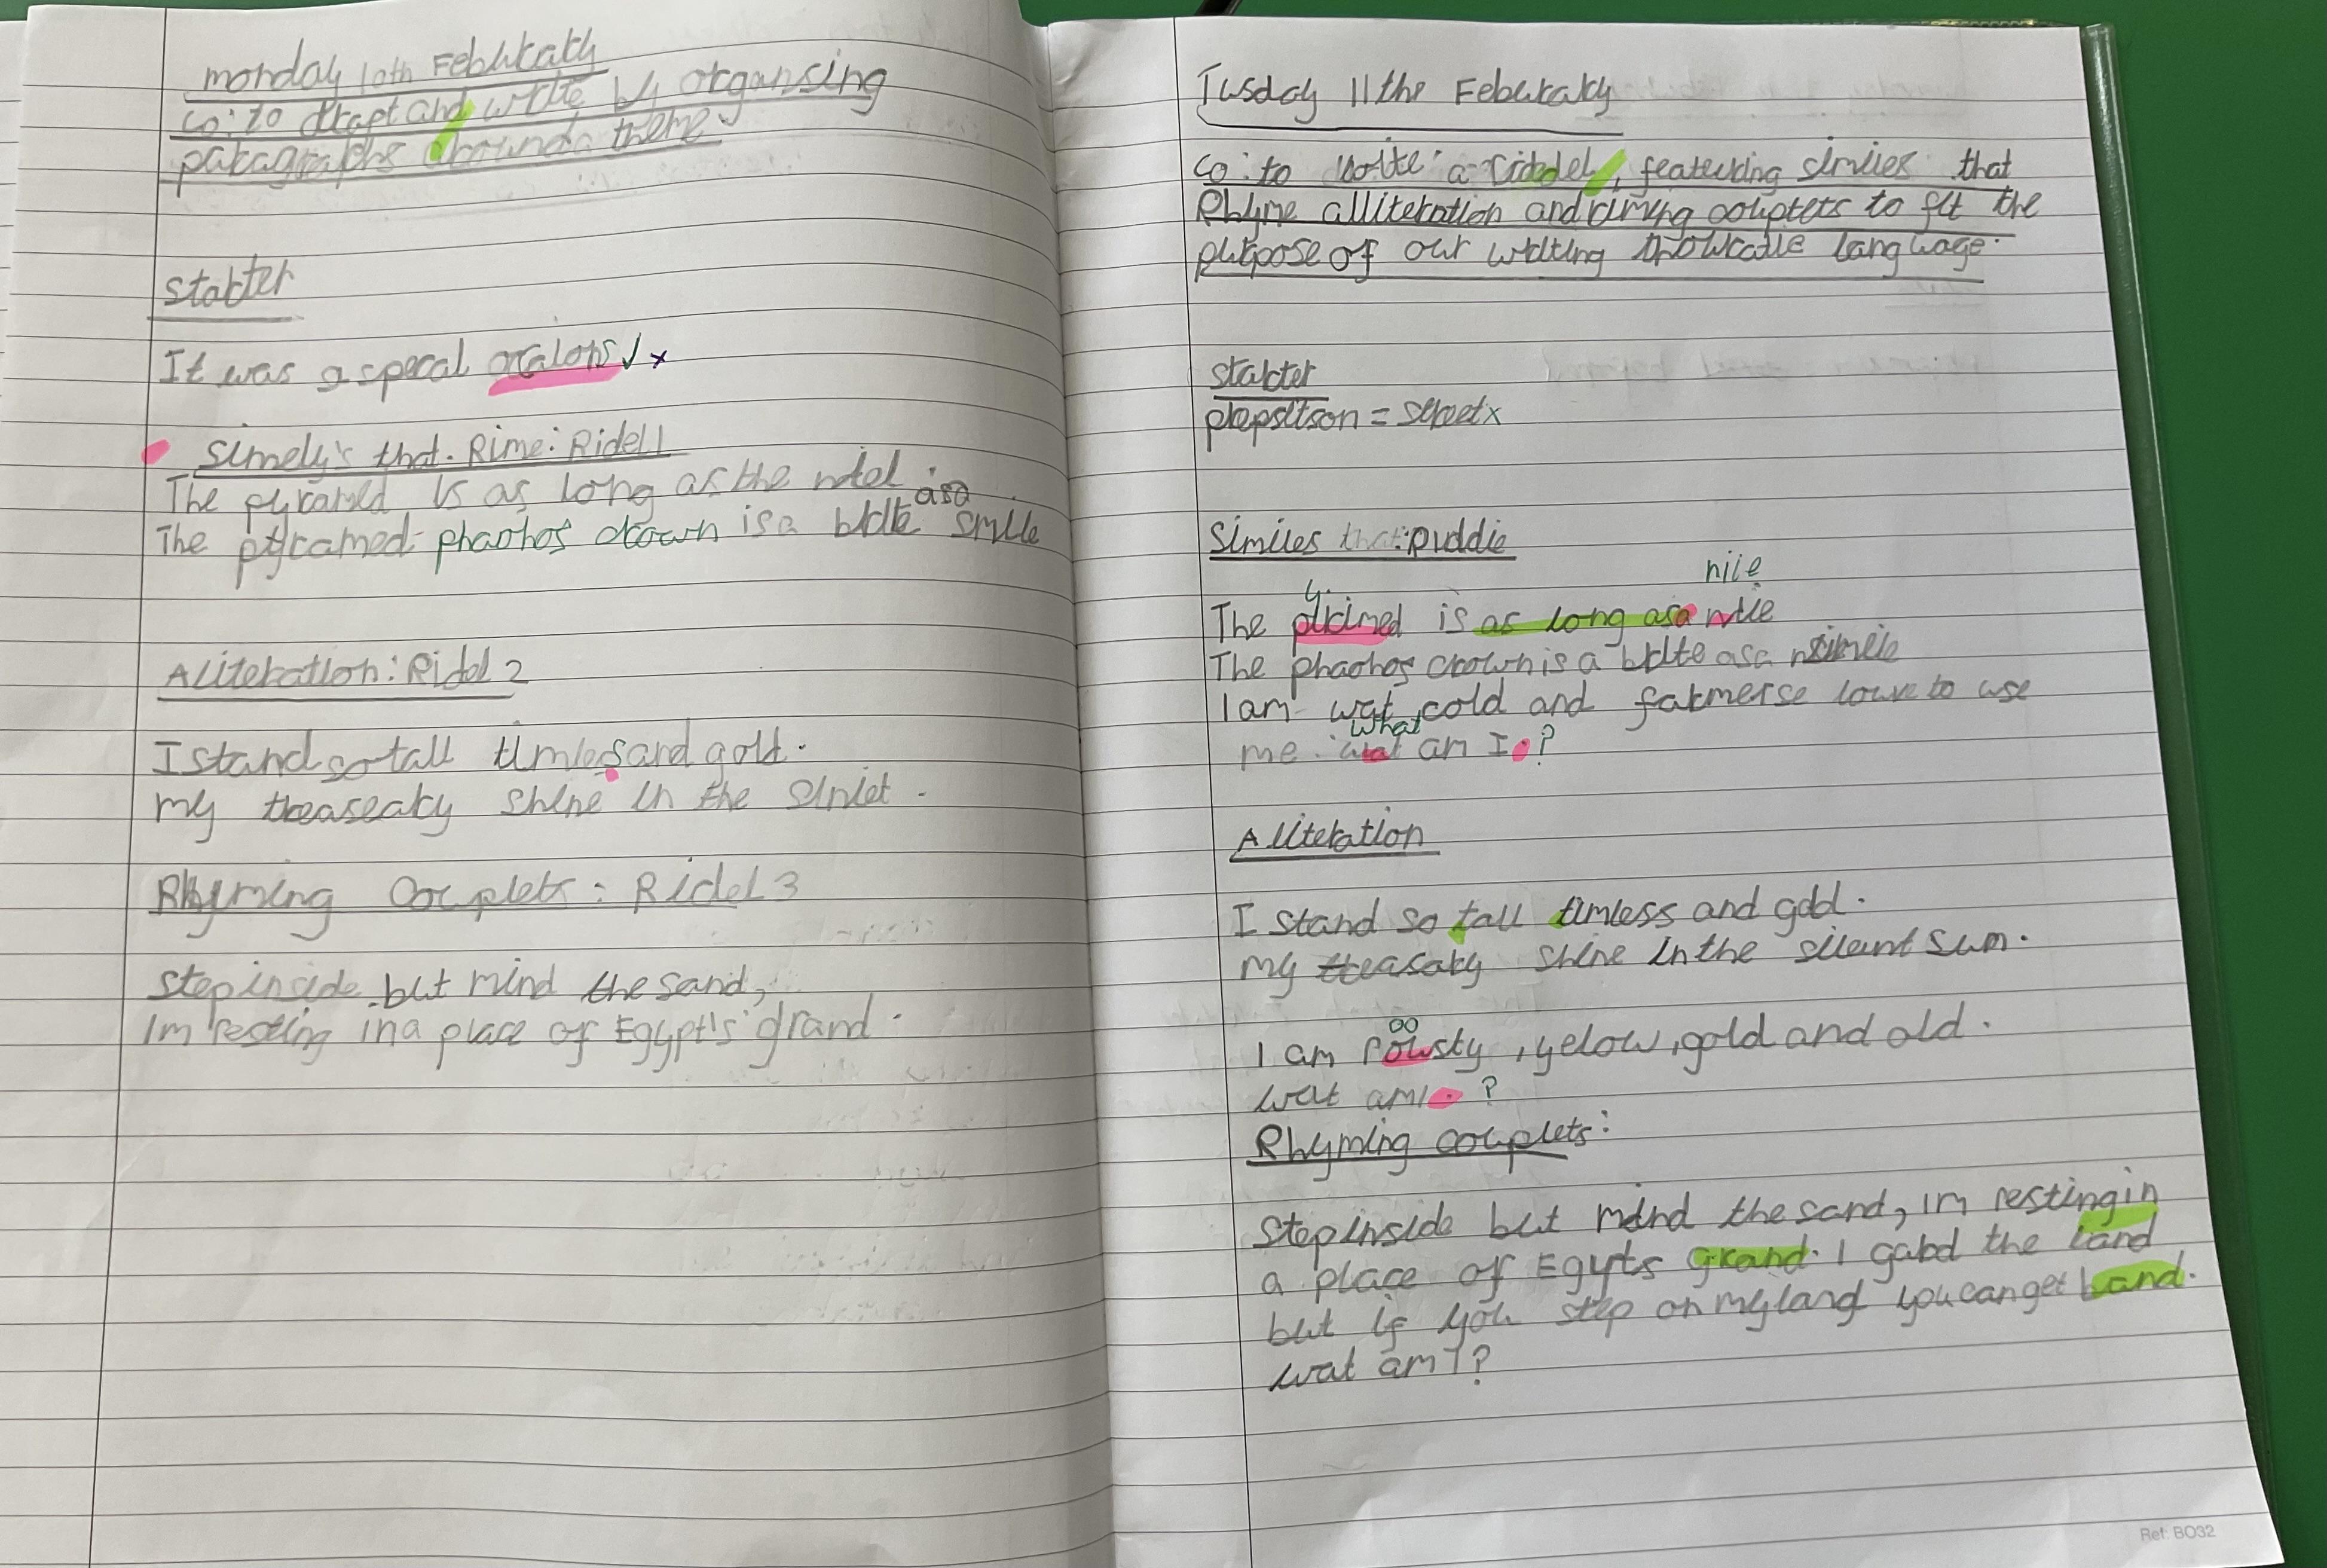 monday 10th Feburary
Co: to drapt and write by organsing
paragraphs around a theme.
starter
It was a specal
simely's that. Rime: Ridel 1
The pyramed is as long as the
The pyramed phaohos crown is a brite as a smile
Aliteration: Ridel 2
I stand so tall timless and gold.
my treaseary shine in the
Rhyming Couplets: Ridel 3
Step inside but mind the sand,
Im resting in a place of Egypt's grand.
Tusday 11the Feburary
Co: to write a riddel, featuring similes that
Rhyme alliteration and riming couplets to fit the
purpose of our writing language.
starter
prepsitson = street x
Similes that: puddle
nile
y
The is as long as a
The phaohos crown is a brite as a
I am wat, cold and farmerse louve to use
what
me. wat am I. ?
Aliteration
I stand so tall timless and gold.
my treasary shine in the silent sum.
oo
I am rowsty, yelow, gold and old.
wat am I. ?
Rhyming couplets:
Step inside but mind the sand, im resting in
a place of Egypts grand. I gard the land
but if you step on my land you can get band.
wat am I?
Ref: BO32